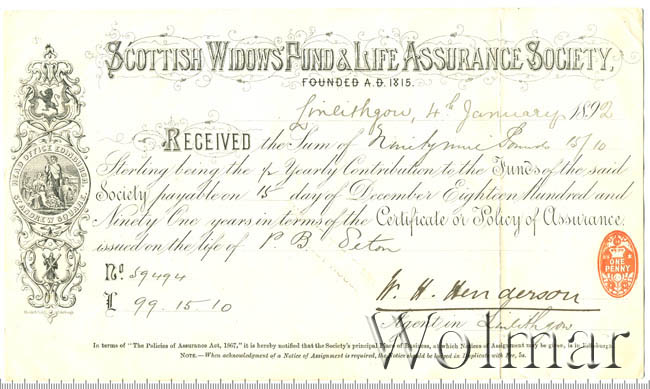 SCOTTISH WIDOWS' FUND & LIFE ASSURANCE SOCIETY,
FOUNDED A.D. 1815.
Linlithgow, 4th January 1892
RECEIVED the Sum of Ninetynine Pounds 15/10
Sterling being the ½ Yearly Contribution to the Funds of the said
Society payable on 15 day of December Eighteen Hundred and
Ninety One years in terms of the Certificate or Policy of Assurance
issued on the life of P B Seton
No. 59494
£ 99.15.10
W. H. Henderson
Agent in Linlithgow
HEAD OFFICE EDINBURGH
ST ANDREW SQUARE
ONE PENNY
In terms of "The Policies of Assurance Act, 1867," it is hereby notified that the Society's principal Place of Business, at which Notices of Assignment may be given, is in Edinburgh.
NOTE.—When acknowledgment of a Notice of Assignment is required, the Notice should be lodged in Duplicate with Fee, 5s.
Wolmar